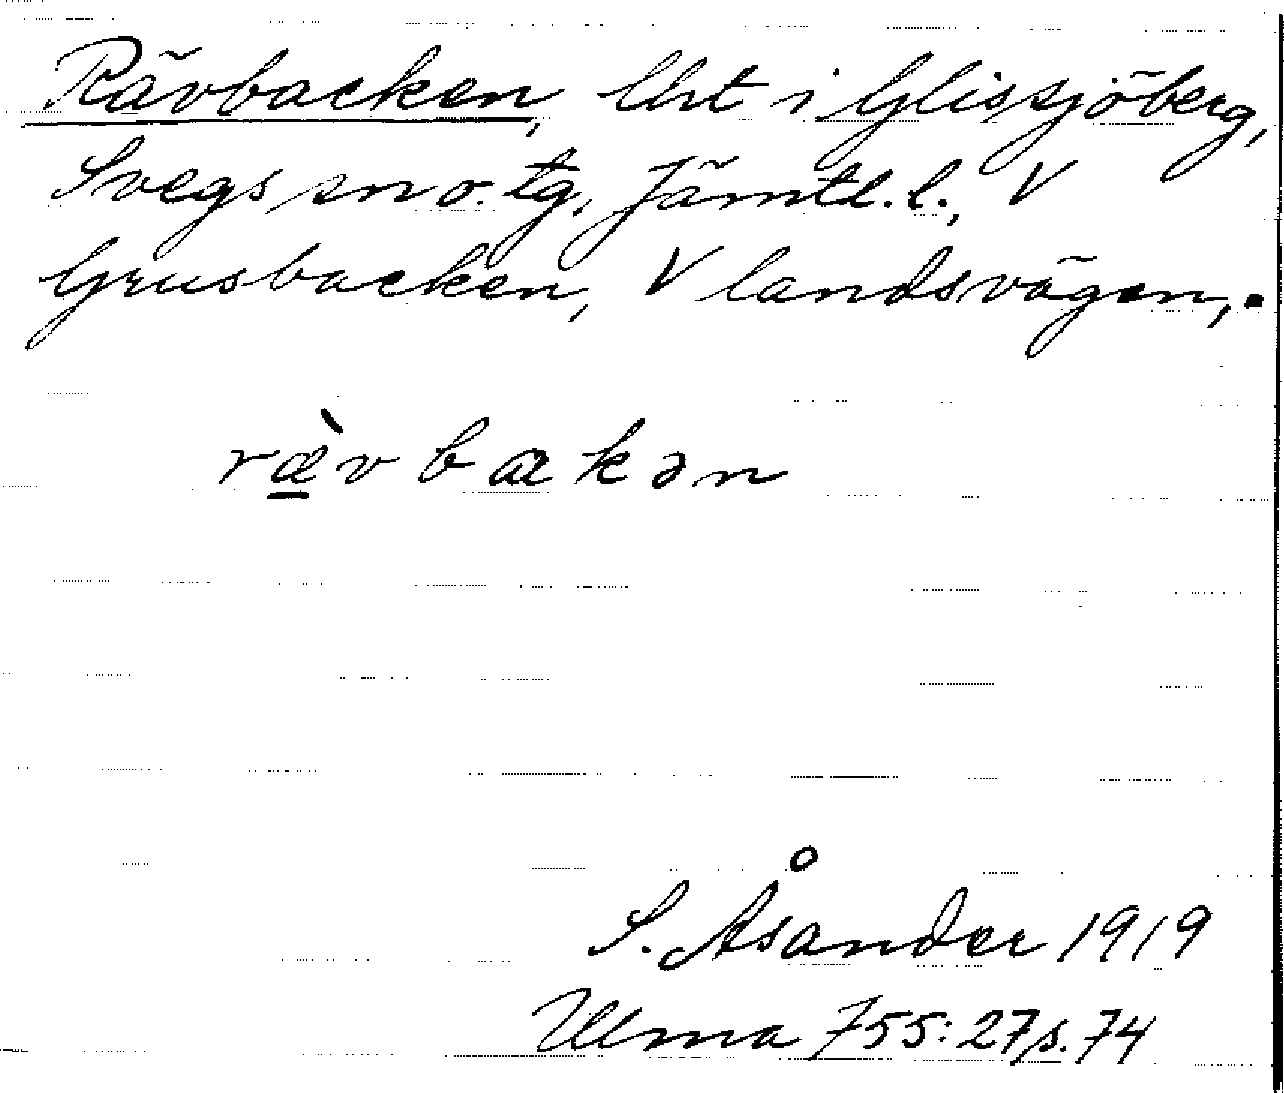 Rävbacken, Urt i Glissjöberg,
Svegs sn o. tg, Jämtl. l., V
Grusbacken, V landsvägen,.
ræ̱̀vbakən
S. Åsander 1919
Ulma 755:27 s. 74